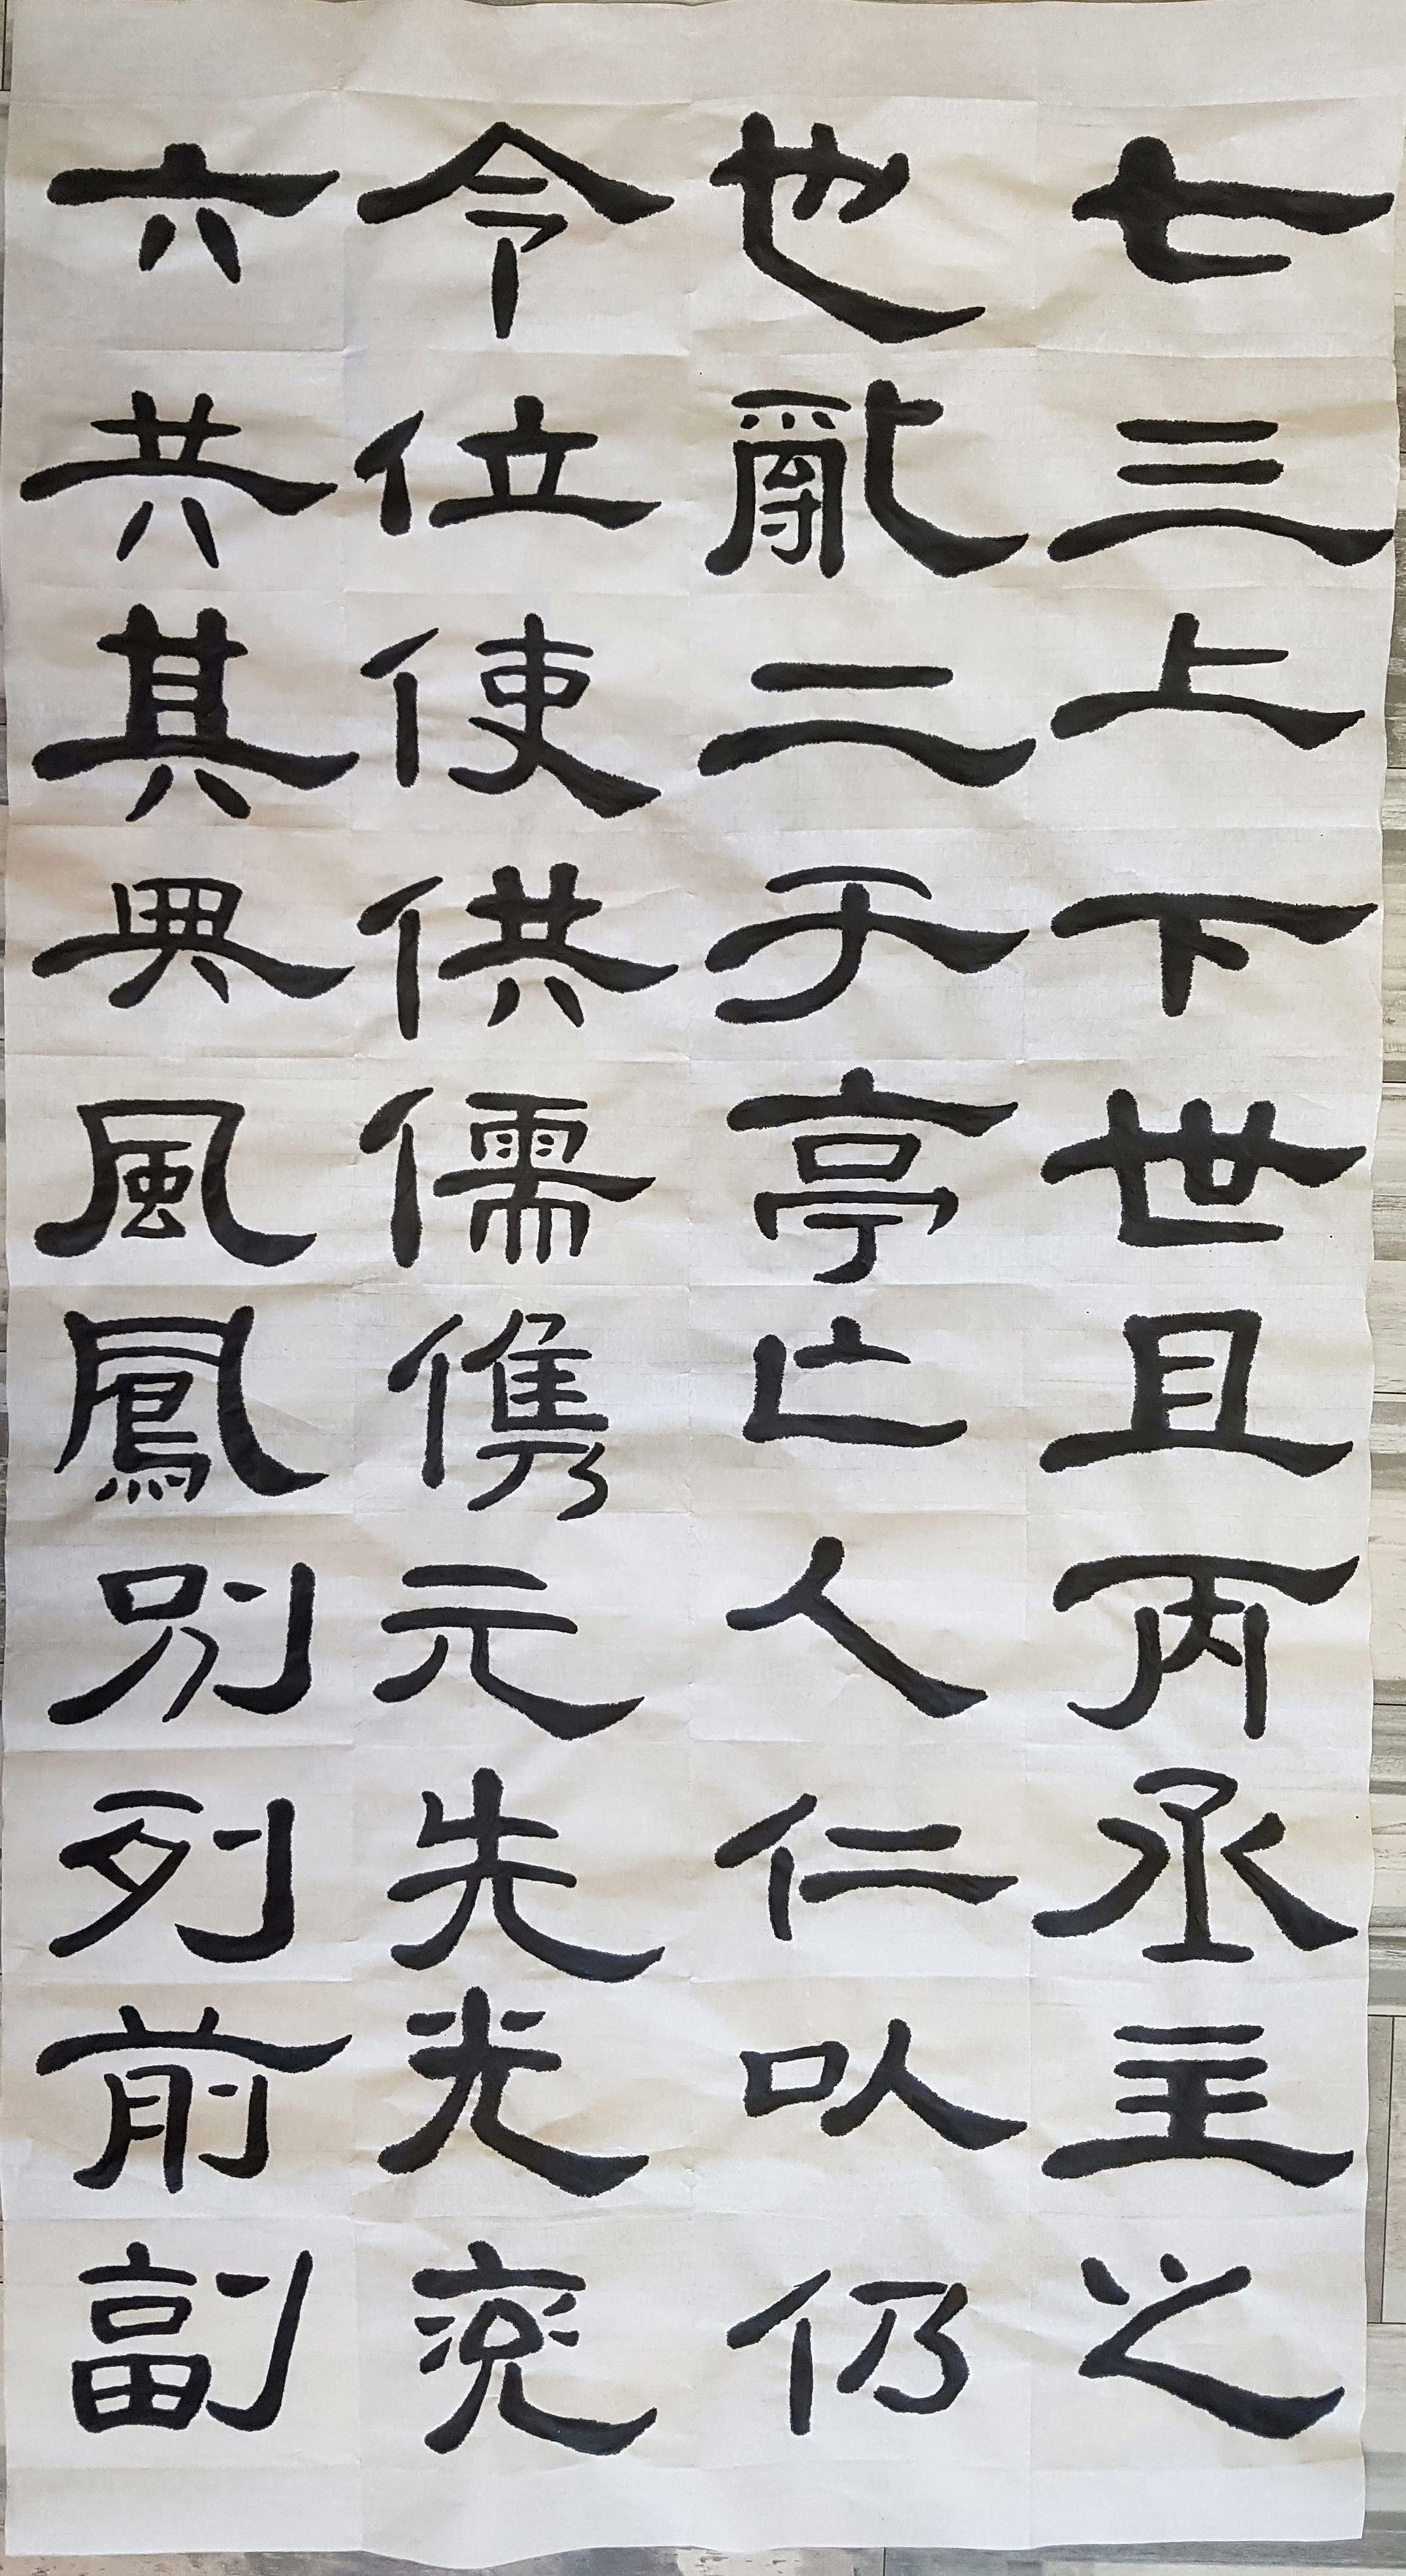 七三上下世且丙丞主之
也亂二于亭亡人仁以仍
令位使供儒儁元先光兗
六共其典風鳳別列前副